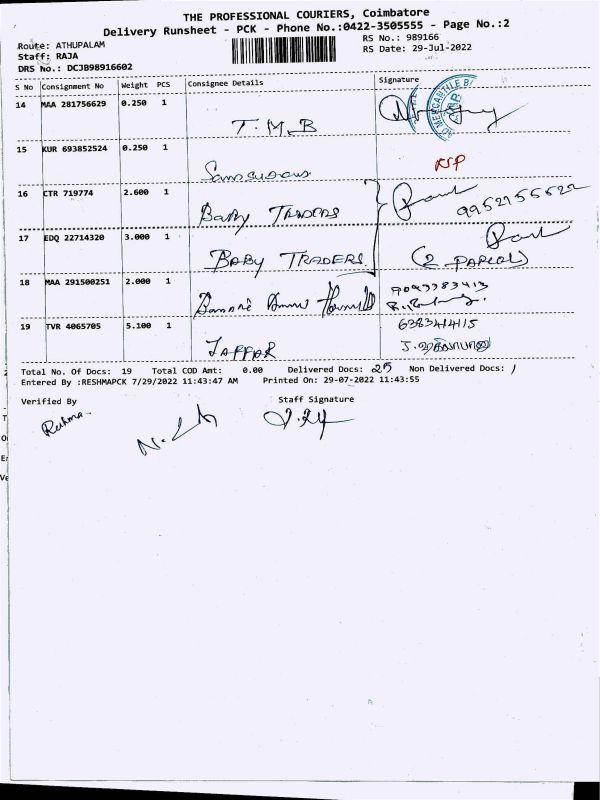 THE PROFESSIONAL COURIERS, Coimbatore
Delivery Runsheet - PCK - Phone No.:0422-3505555 - Page No.:2
Route: ATHUPALAM
RS No.: 989166
Staff: RAJA
RS Date: 29-Jul-2022
DRS No.: DCJB98916602
S No Consignment No Weight PCS Consignee Details Signature
14 MAA 281756629 0.250 1
T.M.B
15 KUR 693852524 0.250 1
16 CTR 719774 2.600 1
BABY TRADERS 9952155622
17 EDQ 22714320 3.000 1
BABY TRADERS (2 PARCEL)
18 MAA 291500251 2.000 1
19 TVR 4065705 5.100 1
JAFFAR
Total No. Of Docs: 19 Total COD Amt: 0.00 Delivered Docs: Non Delivered Docs: /
Entered By :RESHMAPCK 7/29/2022 11:43:47 AM Printed On: 29-07-2022 11:43:55
Verified By Staff Signature
Reshma